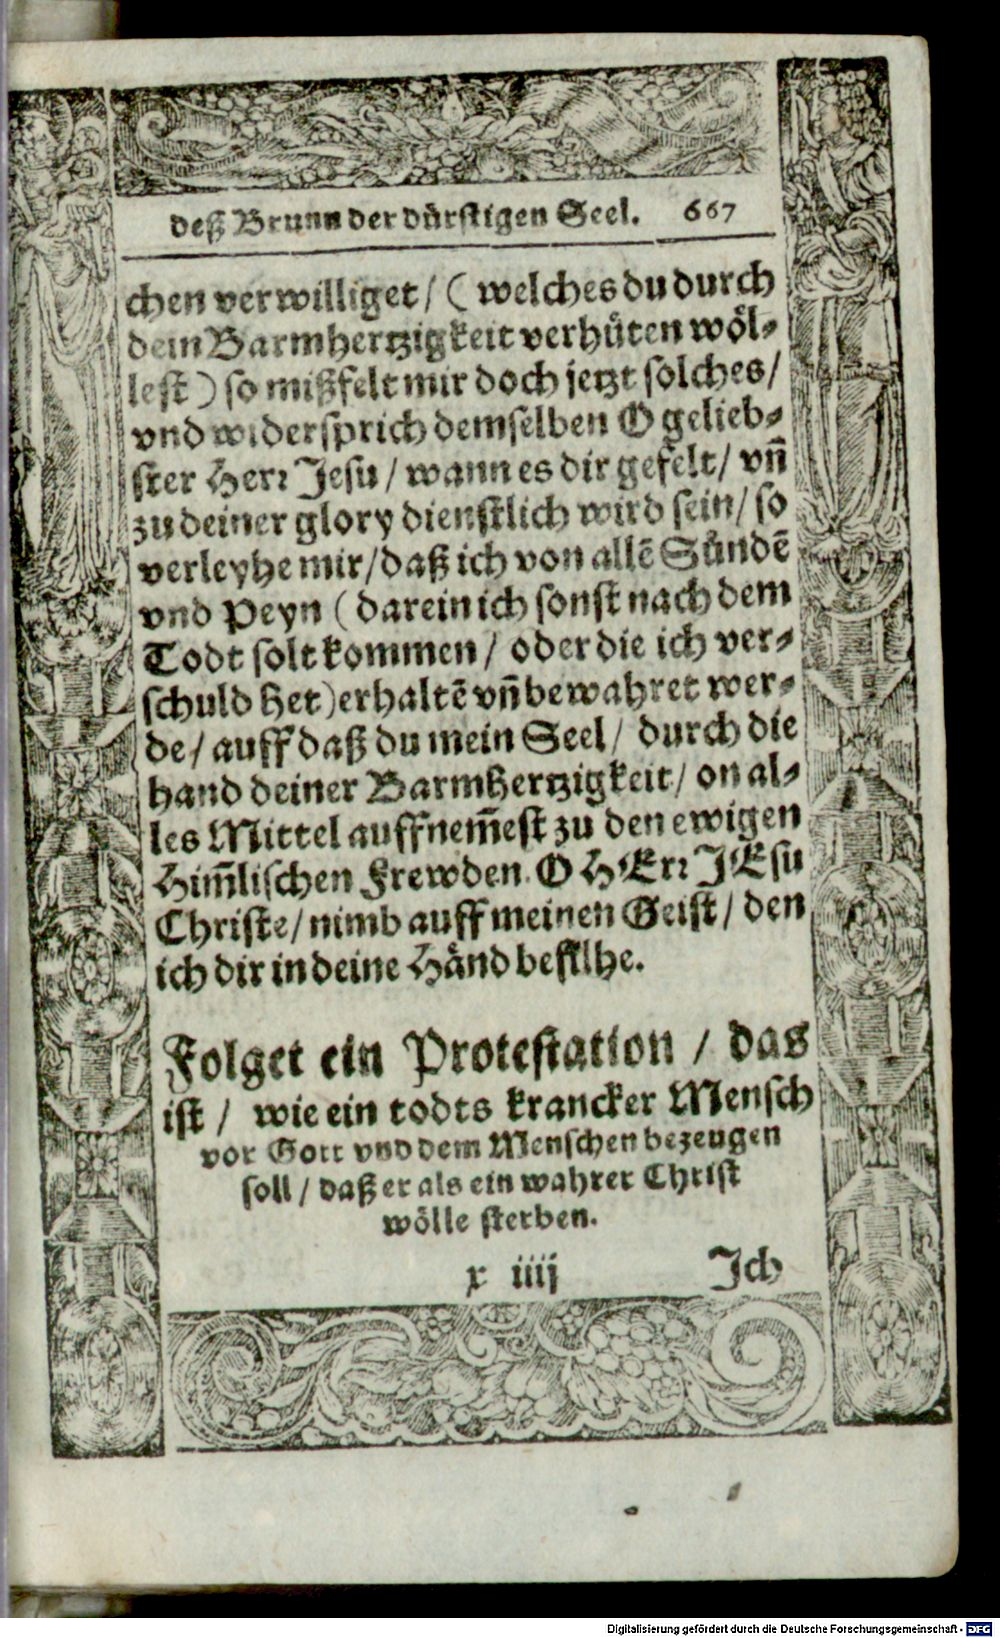 deß Brunn der dürstigen Seel. 667
chen verwilliget / ( welches du durch
dein Barmhertzigkeit verhüten wöl⸗
lest ) so mißfelt mir doch jetzt solches /
vnd widersprich demselben O gelieb⸗
ster Herr Jesu / wann es dir gefelt / vñ
zu deiner glory dienstlich wird sein / so
verleyhe mir / daß ich von allẽ Sündẽ
vnd Peyn ( darein ich sonst nach dem
Todt solt kommen / oder die ich ver⸗
schuld het ) erhaltẽ vñ bewahret wer⸗
de / auff daß du mein Seel / durch die
hand deiner Barmhertzigkeit / on al⸗
les Mittel auffnem̃est zu den ewigen
Him̃lischen Frewden. O HErr JEsu
Christe / nimb auff meinen Geist / den
ich dir in deine Händ befilhe.
Folget ein Protestation / das
ist / wie ein todts krancker Mensch
vor Gott vnd dem Menschen bezeugen
soll / daß er als ein wahrer Christ
wölle sterben.
x iiij Ich
Digitalisierung gefördert durch die Deutsche Forschungsgemeinschaft - DFG